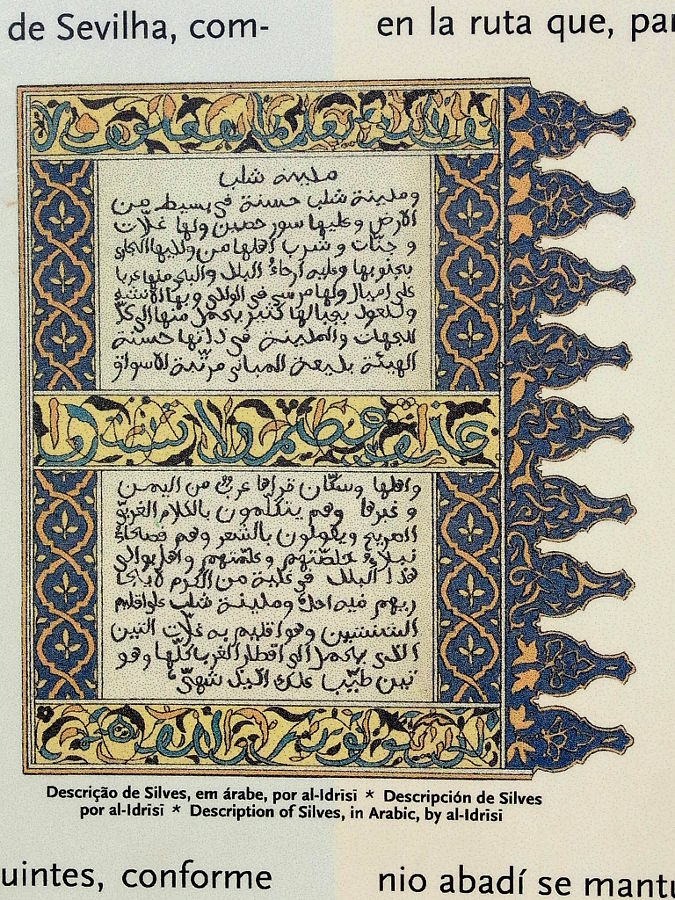 de Sevilha, com-
en la ruta que, par
مدينة شلب
ومدينة شلب حسنة في بسيط من
الأرض وعليها سور حصين ولها غلات
و جنات و شرب أهلها من واديها الجاري
بجنوبها وعليه أرحاء البلد والبحر منها غربا
على أميال ولها مرسى في الوادي وبها الإنشاء
والعود بجبالها كثير يحمل منها إلى كل
الجهات والمدينة في ذاتها حسنة
الهيئة بديعة المباني مرتبة الأسواق
وأهلها وسكان قراها عرب من اليمن
و غيرها وهم يتكلمون بالكلام العربي
الصريح ويقولون بالشعر وهم فصحاء
نبلاء خاصتهم وعامتهم وأهل بوادي
هذا البلد في غاية من الكرم لا يجا
ريهم فيه أحد ومدينة شلب على إقليم
الشنشين وهو إقليم به غلات التين
الذي يحمل إلى أقطار الغرب كلها وهو
تين طيب علك لذيذ شهي
Descrição de Silves, em árabe, por al-Idrisī * Descripción de Silves
por al-Idrisī * Description of Silves, in Arabic, by al-Idrisi
uintes, conforme
nio abadí se mantu